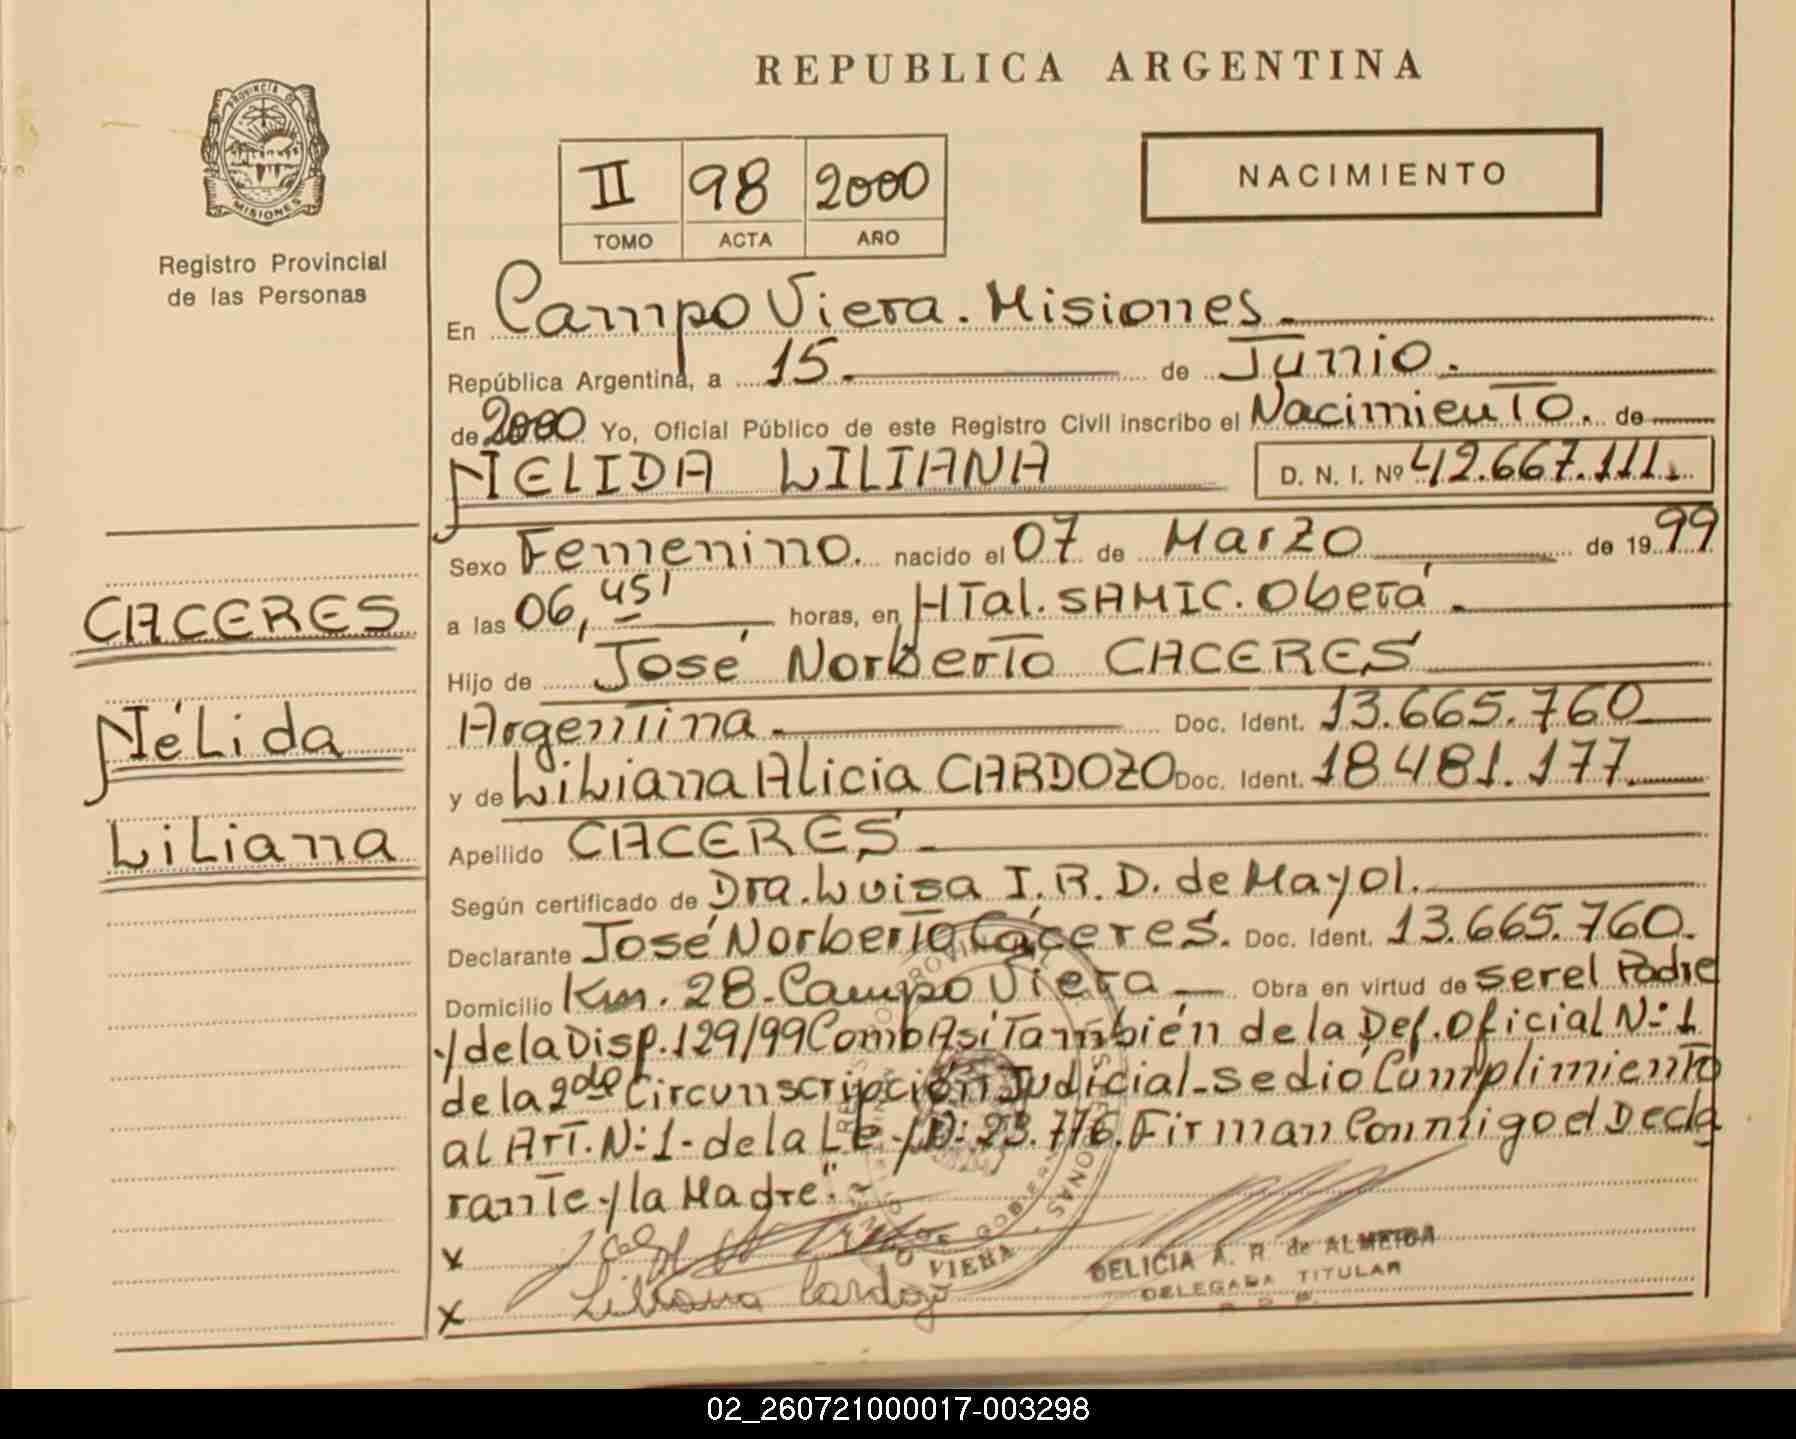 REPUBLICA ARGENTINA
PROVINCIA DE MISIONES
Registro Provincial
de las Personas
II 98 2000
TOMO ACTA AÑO
NACIMIENTO
En Campo Viera. Misiones.
República Argentina, a 15. de Junio.
de 2000 Yo, Oficial Público de este Registro Civil inscribo el Nacimiento. de
NELIDA LILIANA D. N. I. Nº 42.667.111.
Sexo Femenino. nacido el 07 de Marzo de 19 99
a las 06,45' horas, en HTal. SAMIC. Oberá.
Hijo de José Norberto CACERES
Argentina. Doc. Ident. 13.665.760
y de Liliana Alicia CARDOZO Doc. Ident. 18481.177.
Apellido CACERES.
Según certificado de Dra. Luisa I. R. D. de Mayol.
Declarante José Norberto Cáceres. Doc. Ident. 13.665.760.
Domicilio Km. 28-Campo Viera Obra en virtud de ser el Padre
y de la Disp. 129/99 Como Asi También de la Def. Oficial N:1
de la 2da Circunscripción Judicial-se dió Cumplimiento
al Art. N:1-de la Ley N: 23.776. Firman Conmigo el Decla
rante y la Madre."
x
x Liliana Cardozo
DELICIA A. R. de ALMEIDA
DELEGADA TITULAR
CACERES
Nélida
Liliana
02_260721000017-003298